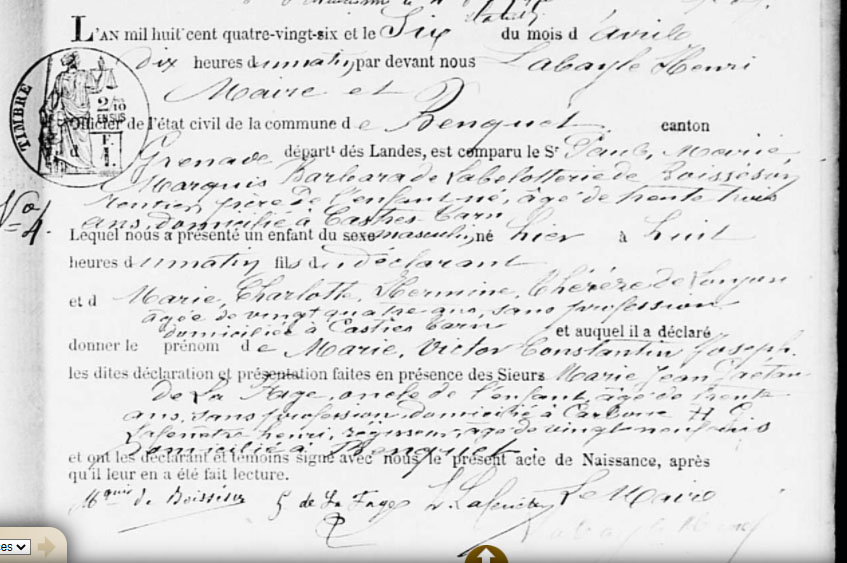 L'AN mil huit cent quatre-vingt-six et le Six du mois d'avril
dix heures du matin, par devant nous Labayle Henri
Maire et
Officier de l'état civil de la commune de Benquet canton
d Grenade départt dés Landes, est comparu le Sr Paul, Marie,
Marquis Barbara de Labelotterie de Boisséson
rentier père de l'enfant né, âgé de trente trois
ans, domicilié à Castres Tarn
No 4.
Lequel nous a présenté un enfant du sexe masculin, né hier à huit
heures du matin fils du déclarant
et d Marie, Charlotte, Hermine, Thérèze de
âgée de vingt quatre ans, sans profession
domiciliée à Castres Tarn et auquel il a déclaré
donner le prénom de Marie, Victor Constantin Joseph.
les dites déclaration et présentation faites en présence des Sieurs Marie, Jean Gaetan
De La Fage, oncle de l'enfant, âgé de trente
ans, sans profession domicilié à H. G.
Lafenêtre henri, régisseur, âgé de vingt neuf ans
domicilié à Benquet
et ont les déclarant et témoins signé avec nous le présent acte de Naissance, après
qu'il leur en a été fait lecture.
Mquis de Boisséson G de La Fage h. Lafenêtre Le Maire
TIMBRE
2/10
EN SUS